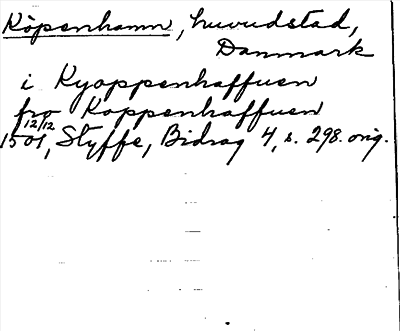 Köpenhamn, huvudstad,
Danmark
i Kyoppenhaffuen
fro Koppenhaffuen
12/12
1501, Styffe, Bidrag 4, s. 298. orig.